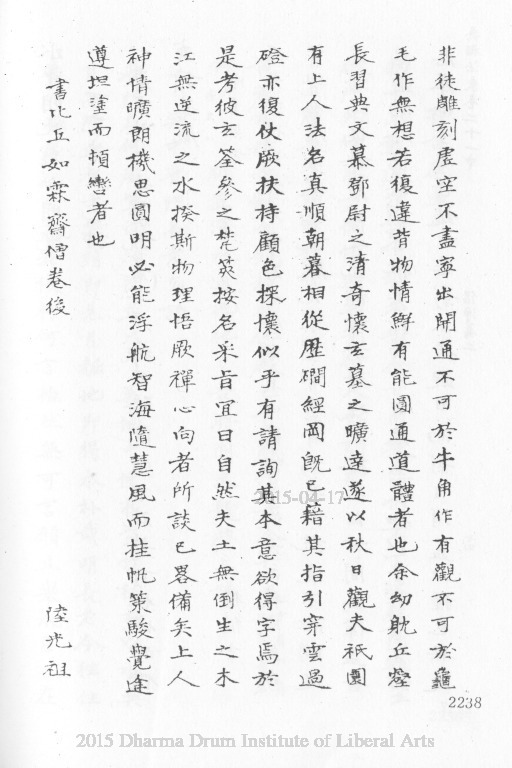 非徒雕刻虛空不盡寧出開通不可於牛角作有觀不可於龜
毛作無想若復違背物情鮮有能圓通道體者也余幼耽丘壑
長習典文慕鄧尉之清奇懷玄墓之曠達遂以秋日觀夫祇園
有上人法名真順朝暮相從歷磵經岡旣已藉其指引穿雲過
磴亦復仗厥扶持顧色探懷似乎有請詢其本意欲得字焉於
是考彼玄筌參之梵筴按名采旨宜曰自然夫土無倒生之木
江無逆流之水揆斯物理悟厥禪心向者所談已畧備矣上人
神情曠朗機思圓明必能浮航智海隨慧風而挂帆策駿覺途
遵坦塗而頓轡者也
書比丘如霖齋僧卷後
陸光祖
2238
2015-04-17
2015 Dharma Drum Institute of Liberal Arts